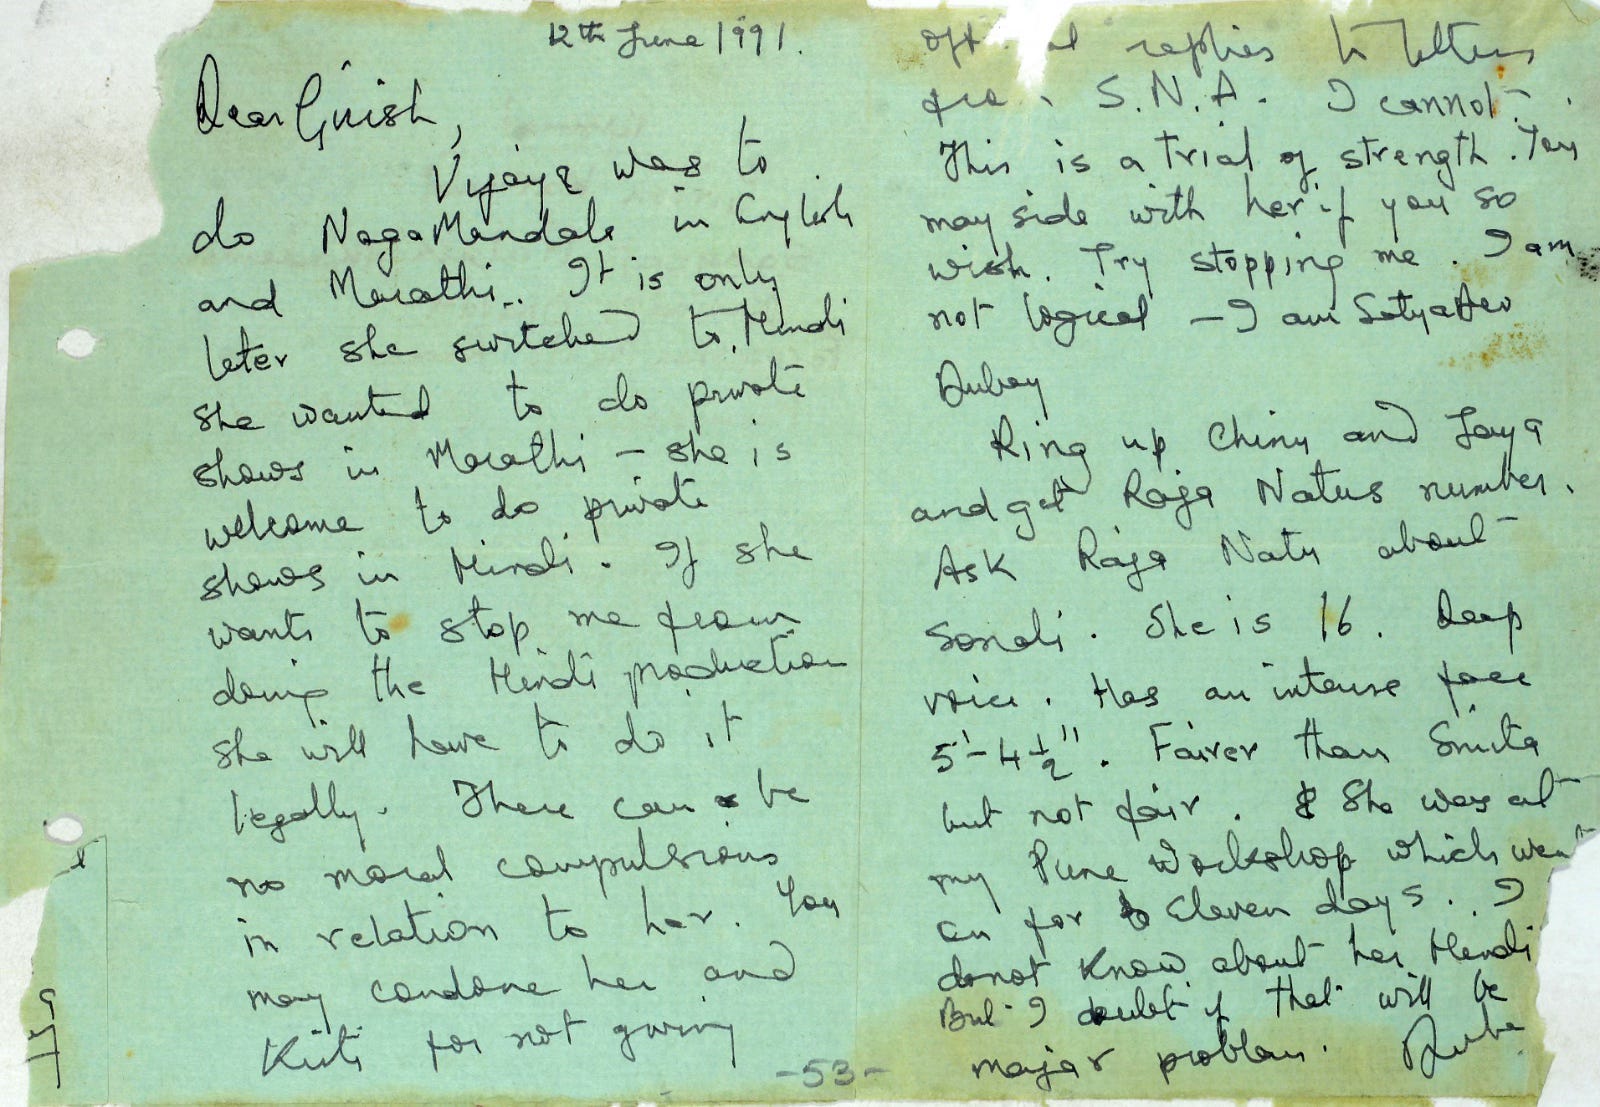 12th June 1991.
Dear Girish,
Vijaya was to
do NagaMandala in English
and Marathi. It is only
later she switched to Hindi
she wanted to do private
shows in Marathi – she is
welcome to do private
shows in Hindi. If she
wants to stop me from
doing the Hindi production
she will have to do it
legally. There can be
no moral compulsions
in relation to her. You
may condone her and
Kirti for not giving
replies to letters
S.N.A. I cannot.
This is a trial of strength. You
may side with her if you so
wish. Try stopping me. I am
not logical – I am Satyadev
Dubey
Ring up Chinu and Jaya
and get Raja Natus number.
Ask Raja Natu about
Sonali. She is 16. Deep
voice. Has an intense face
5'-4½". Fairer than Smita
but not fair. She was at
my Pune Workshop which went
on for eleven days. I
do not know about her Hindi
But I doubt if that will be
major problem. Dube
-53-